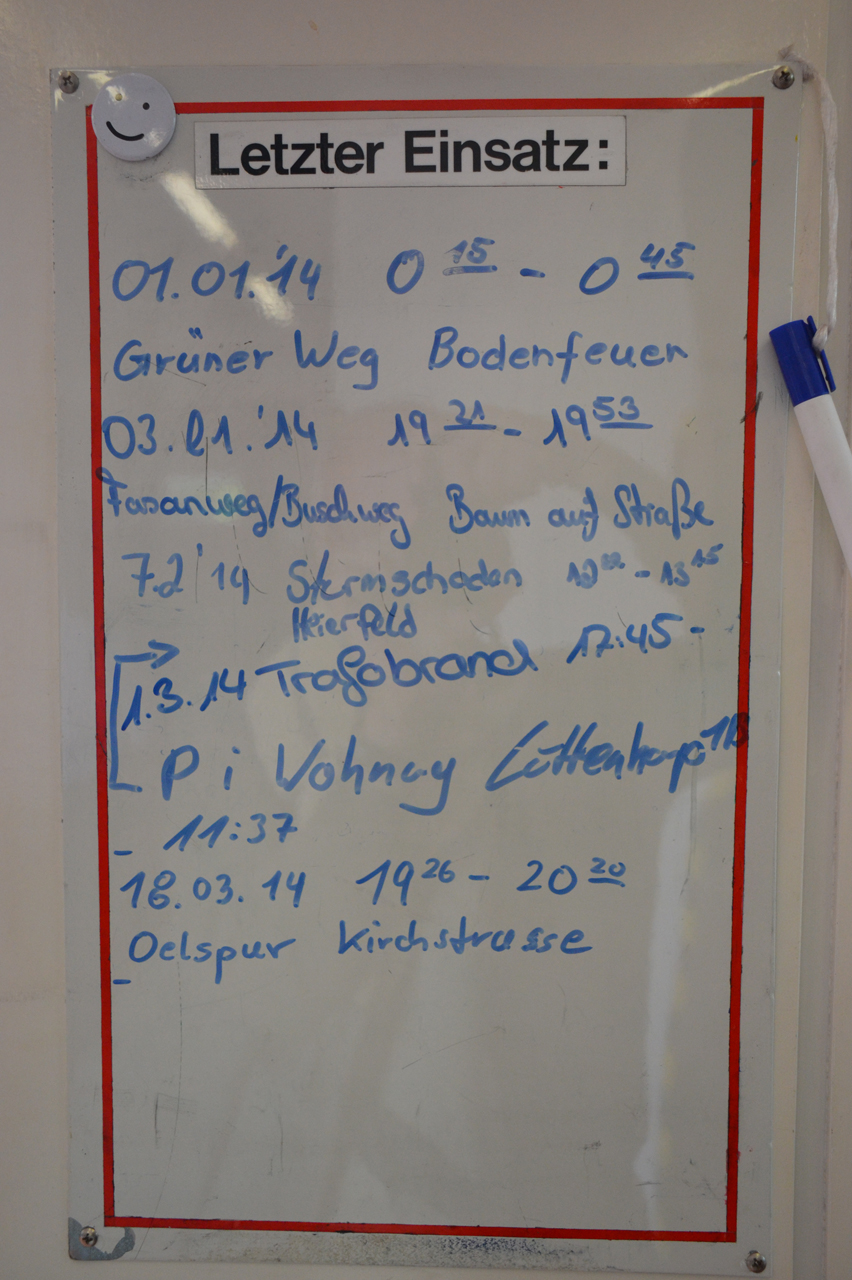 Letzter Einsatz:
01.01.'14 0 15 - 0 45
Grüner Weg Bodenfeuer
03.01.'14 19 21 - 19 53
Fasanweg/Buschweg Baum auf Straße
7.2'14 Sturmschaden - 13 15
Heierfeld
1.3.14 Trafobrand 17:45 -
P i Wohnung
- 11:37
18.03.14 19 26 - 20 20
Oelspur Kirchstrasse
-